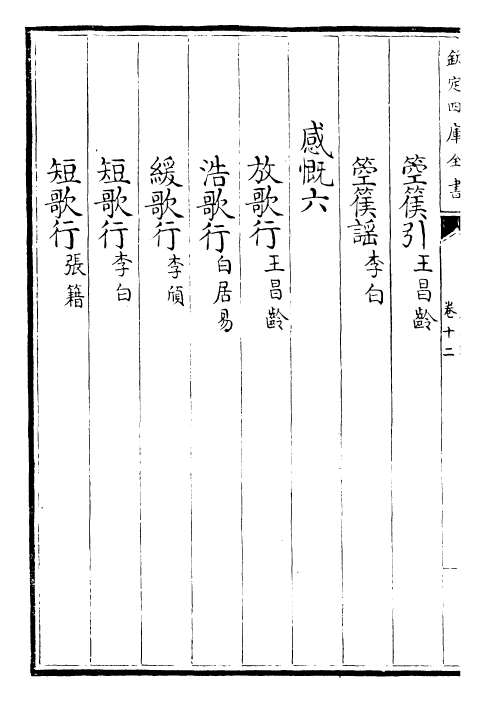 欽定四庫全書
卷十二
箜篌引王昌齡
箜篌謡李白
感慨六
放歌行王昌齡
浩歌行白居易
緩歌行李頎
短歌行李白
短歌行張籍